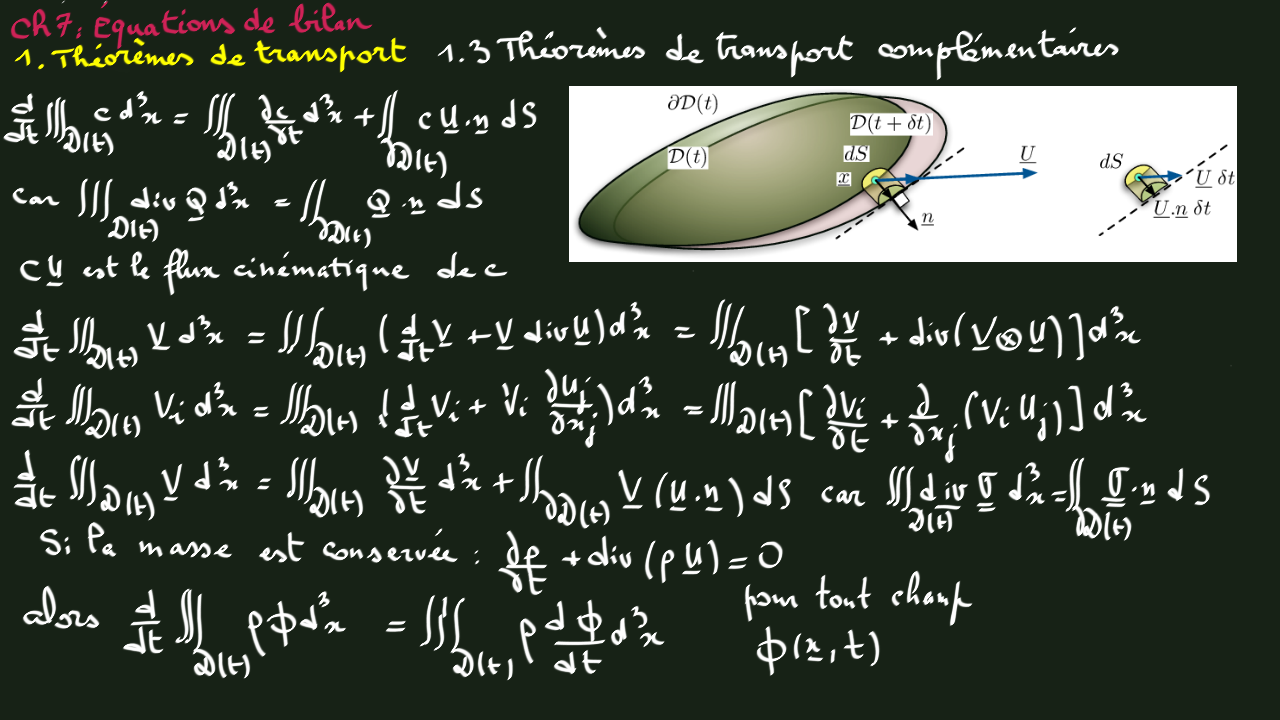 Ch7: Équations de bilan
1. Théorèmes de transport 1.3 Théorèmes de transport complémentaires
d/dt ∭_D(t) c d³x = ∭_D(t) ∂c/∂t d³x + ∬_∂D(t) c U̲.n̲ dS
car ∭_D(t) div Q̲ d³x = ∬_∂D(t) Q̲.n̲ dS
c U̲ est le flux cinématique de c
∂D(t)
D(t + δt)
D(t)
dS
x̲
U̲
n̲
dS
U̲ δt
U̲.n̲ δt
d/dt ∭_D(t) V̲ d³x = ∭_D(t) (d/dt V̲ + V̲ div U̲) d³x = ∭_D(t) [∂V̲/∂t + div(V̲ ⊗ U̲)] d³x
d/dt ∭_D(t) Vi d³x = ∭_D(t) (d/dt Vi + Vi ∂Uj/∂xj) d³x = ∭_D(t) [∂Vi/∂t + ∂/∂xj (Vi Uj)] d³x
d/dt ∭_D(t) V̲ d³x = ∭_D(t) ∂V̲/∂t d³x + ∬_∂D(t) V̲ (U̲.n̲) dS car ∭_D(t) div σ̲ d³x = ∬_∂D(t) σ̲.n̲ dS
Si la masse est conservée : ∂ρ/∂t + div(ρ U̲) = 0
alors d/dt ∭_D(t) ρ ϕ d³x = ∭_D(t) ρ dϕ/dt d³x pour tout champ
ϕ(x̲, t)